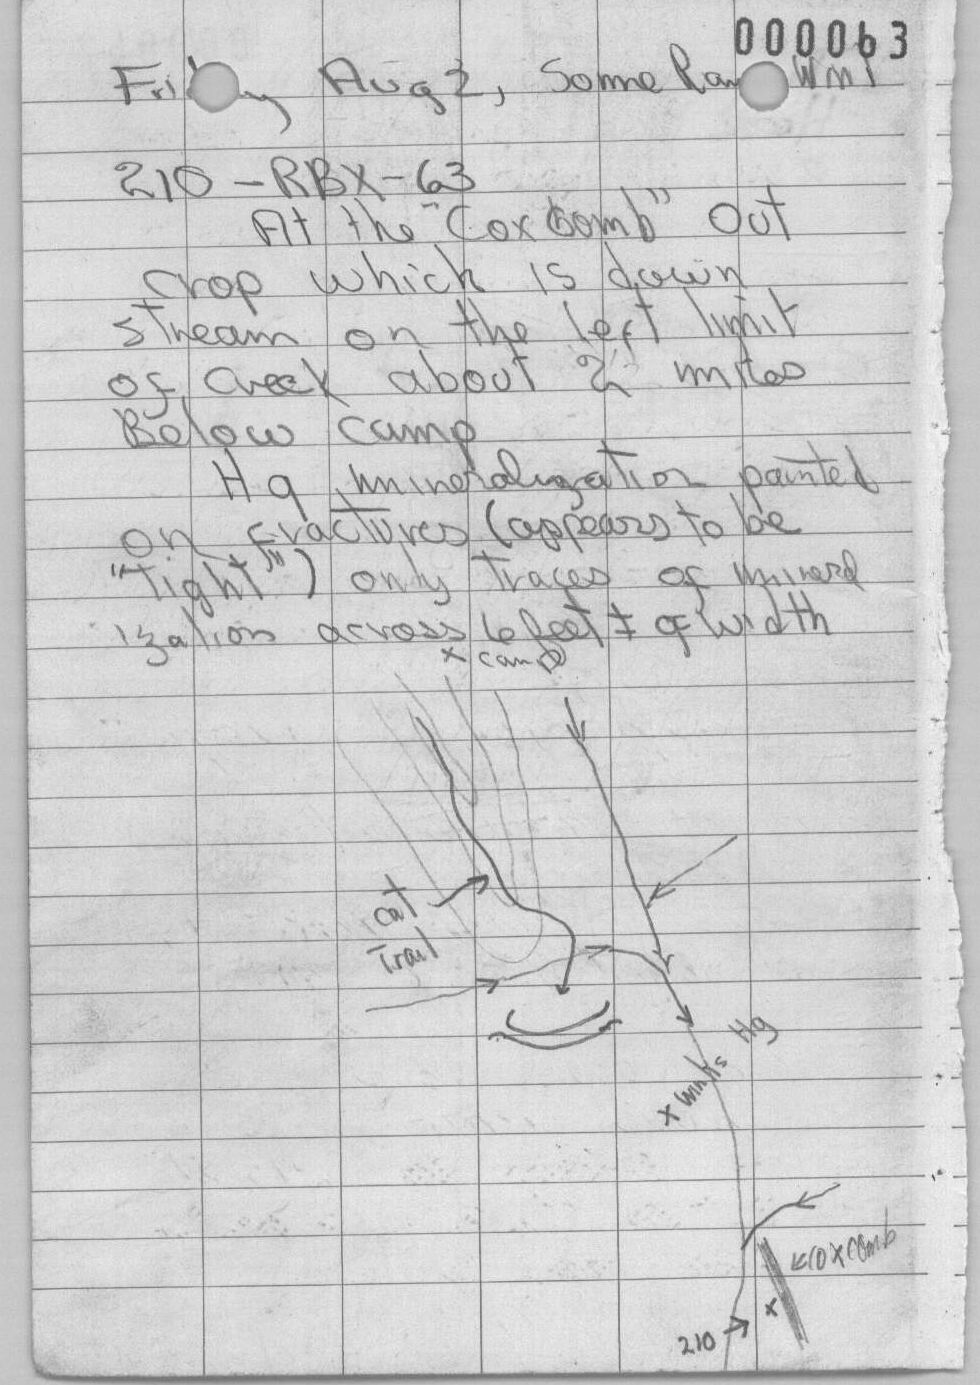 000063
Friday Aug 2, Some Rain WMT
210-RBX-63
At the "Coxbomb" Out
crop which is down
stream on the left limit
of creek about 2 miles
Below camp
Hg mineralization painted
on fractures (appears to be
"Tight") only traces of mineral
ization across 6 feet ± of width
x camp
cat
Trail
Hg
x
coxcomb
x
210